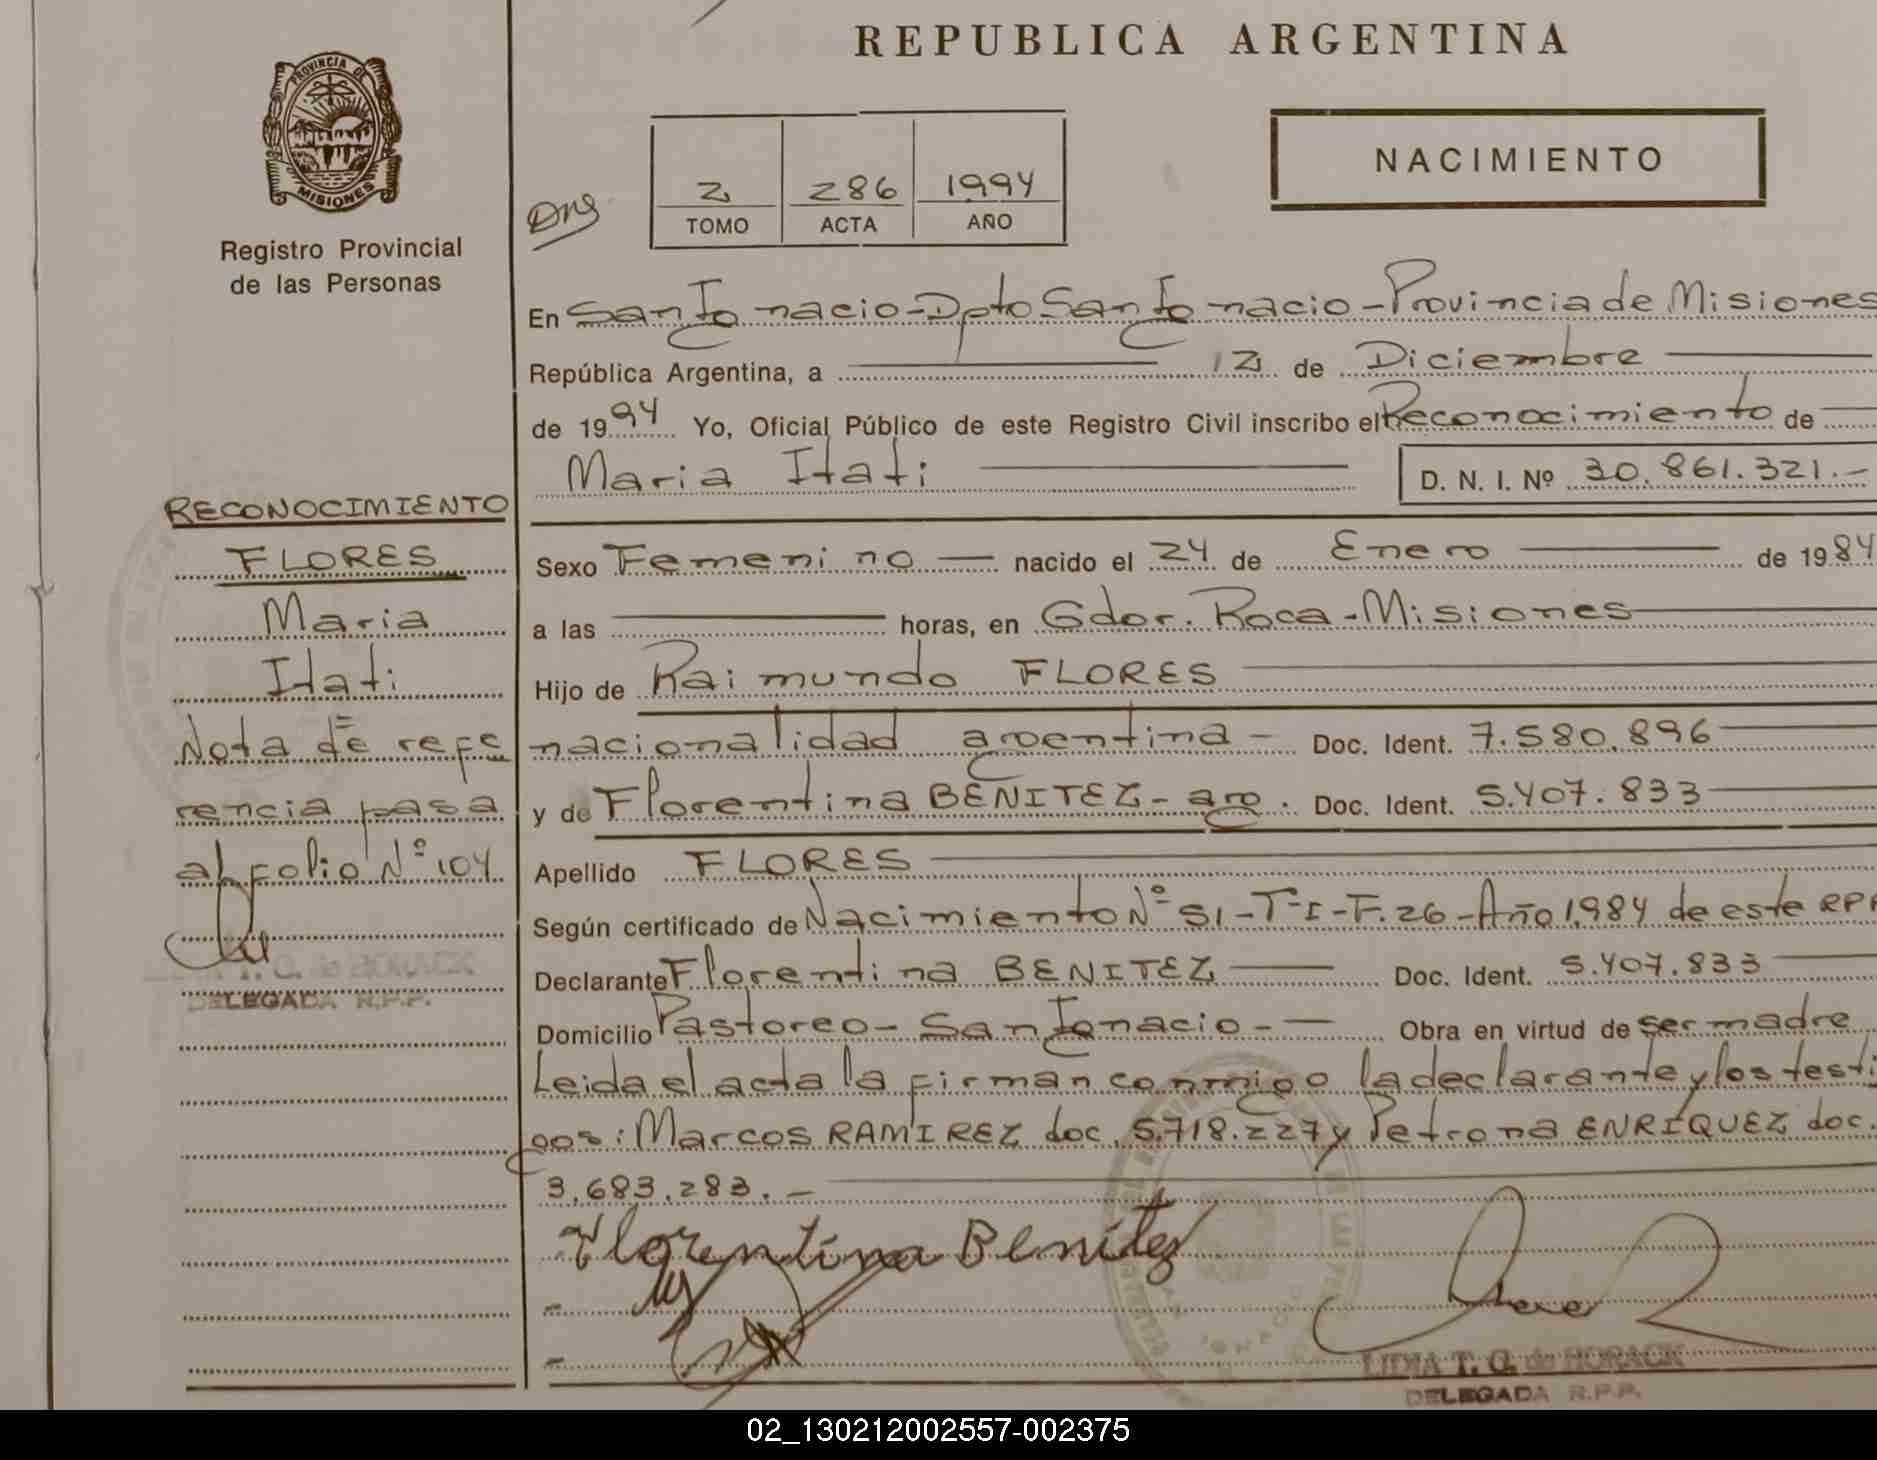 REPUBLICA ARGENTINA
PROVINCIA DE
MISIONES
Registro Provincial
de las Personas
2 286 1994
TOMO ACTA AÑO
NACIMIENTO
En San Ignacio - Dpto San Ignacio - Provincia de Misiones
República Argentina, a 12 de Diciembre
de 1994 Yo, Oficial Público de este Registro Civil inscribo el Reconocimiento de
Maria Itati D. N. I. Nº 30.861.321.-
RECONOCIMIENTO
FLORES
Maria
Itati
Nota de refe
rencia pasa
al folio Nº 104
DELEGADA R.P.P.
Sexo Femenino nacido el 24 de Enero de 1984
a las horas, en Gdor. Roca - Misiones
Hijo de Raimundo FLORES
nacionalidad argentina - Doc. Ident. 7.580.896
y de Florentina BENITEZ - arg. Doc. Ident. 5.407.833
Apellido FLORES
Según certificado de Nacimiento Nº 51 - Tº I - F. 26 - Año 1.984 de este RPP
Declarante Florentina BENITEZ Doc. Ident. 5.407.833
Domicilio Pastoreo - San Ignacio - Obra en virtud de ser madre
Leida el acta la firman conmigo la declarante y los testi
gos: Marcos RAMIREZ doc. 5.718.227 y Petrona ENRIQUEZ doc.
3.683.283. -
Florentina Benítez
LIDIA T. G. de HORACK
DELEGADA R.P.P.
02_130212002557-002375